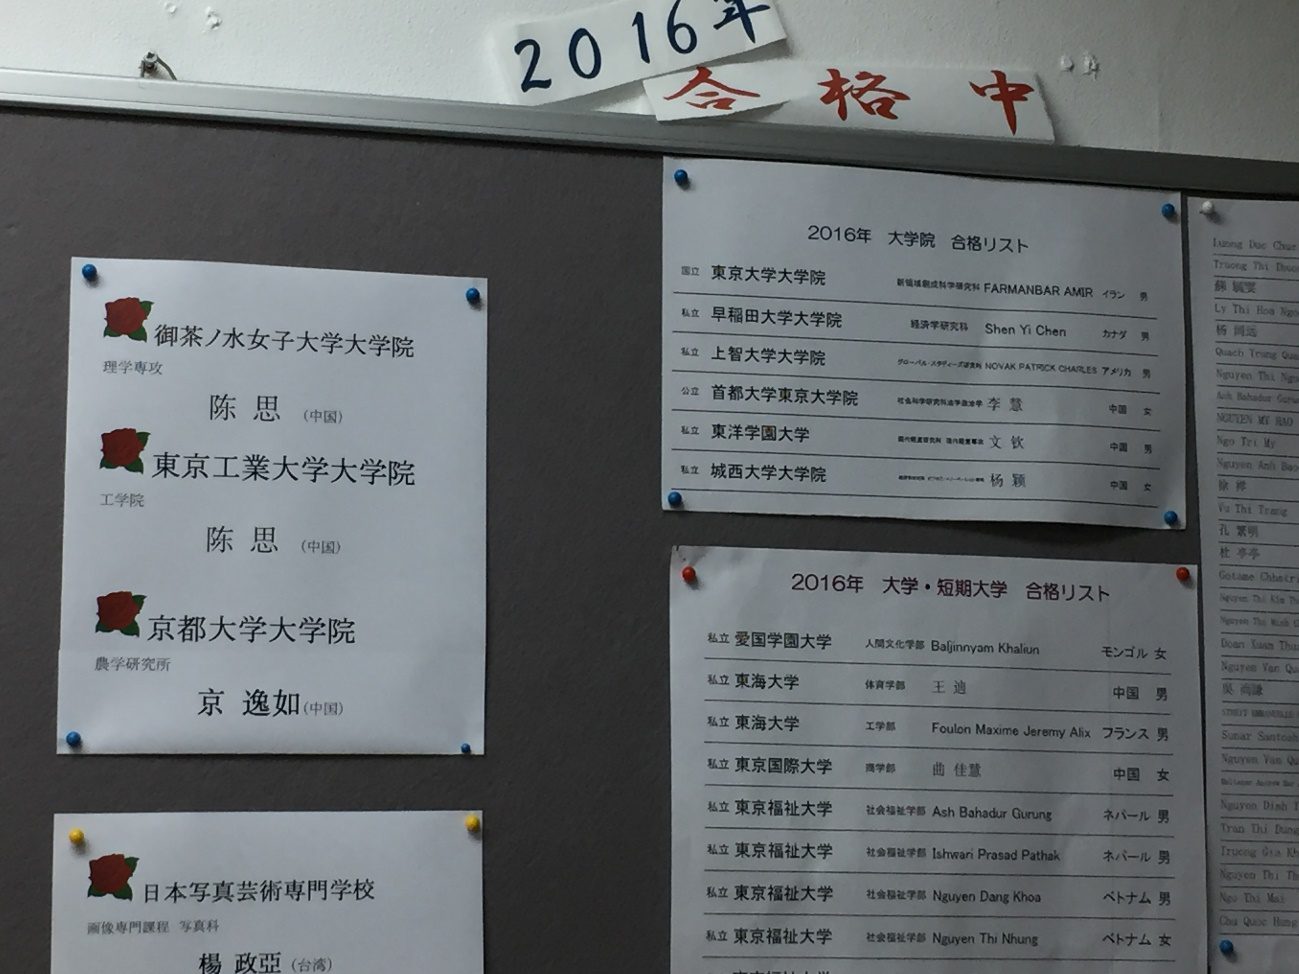 2016年
合格中
御茶ノ水女子大学大学院
理学専攻
陈 思 (中国)
東京工業大学大学院
工学院
陈 思 (中国)
京都大学大学院
農学研究所
京 逸如(中国)
日本写真芸術専門学校
画像専門課程 写真科
楊 政亞 (台湾)
2016年 大学院 合格リスト
国立 東京大学大学院 新領域創成科学研究科 FARMANBAR AMIR イラン 男
私立 早稲田大学大学院 経済学研究科 Shen Yi Chen カナダ 男
私立 上智大学大学院 グローバル・スタディーズ研究科 NOVAK PATRICK CHARLES アメリカ 男
公立 首都大学東京大学院 社会科学研究科法学政治学 李 慧 中国 女
私立 東洋学園大学 文 钦 中国 男
私立 城西大学大学院 杨 颖 中国 女
2016年 大学・短期大学 合格リスト
私立 愛国学園大学 人間文化学部 Baljinnyam Khaliun モンゴル 女
私立 東海大学 体育学部 王 適 中国 男
私立 東海大学 工学部 Foulon Maxime Jeremy Alix フランス 男
私立 東京国際大学 商学部 曲 佳慧 中国 女
私立 東京福祉大学 社会福祉学部 Ash Bahadur Gurung ネパール 男
私立 東京福祉大学 社会福祉学部 Ishwari Prasad Pathak ネパール 男
私立 東京福祉大学 社会福祉学部 Nguyen Dang Khoa ベトナム 男
私立 東京福祉大学 社会福祉学部 Nguyen Thi Nhung ベトナム 女
Luong Duc Chu
Truong Thi
Ly Thi Hoa Ngo
Quach Trung Qua
Nguyen Thi Ngu
Ash Bahadur Guru
NGUYEN MY HAO
Ngo Tri My
Nguyen Anh Bao
徐 樺
Vu Thi Trang
孔 繁明
杜 亭亭
Gotame Chhetr
Nguyen Thi Kim
Nguyen Thi Minh
Doan Xuan Thu
Nguyen Van Qu
Sunar Santosh
Nguyen Van Qu
Nguyen Dinh
Tran Thi Dung
Truong Gia Kh
Nguyen Thi Th
Ngo Thi Mai
Chu Quoc Hung